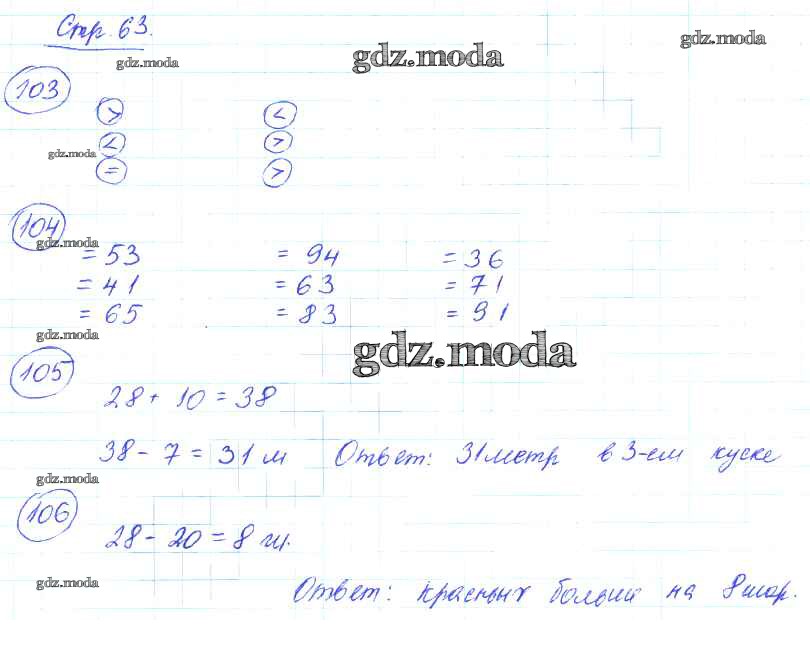 Стр. 63.
gdz.moda
gdz.moda
gdz.moda
103
> <
< >
gdz.moda
= >
104
gdz.moda
= 53 = 94 = 36
= 41 = 63 = 71
= 65 = 83 = 91
gdz.moda
gdz.moda
105
28 + 10 = 38
38 - 7 = 31 м Ответ: 31 метр в 3-ем куске
gdz.moda
106
28 - 20 = 8 ш.
gdz.moda
Ответ: красных больше на 8 шар.